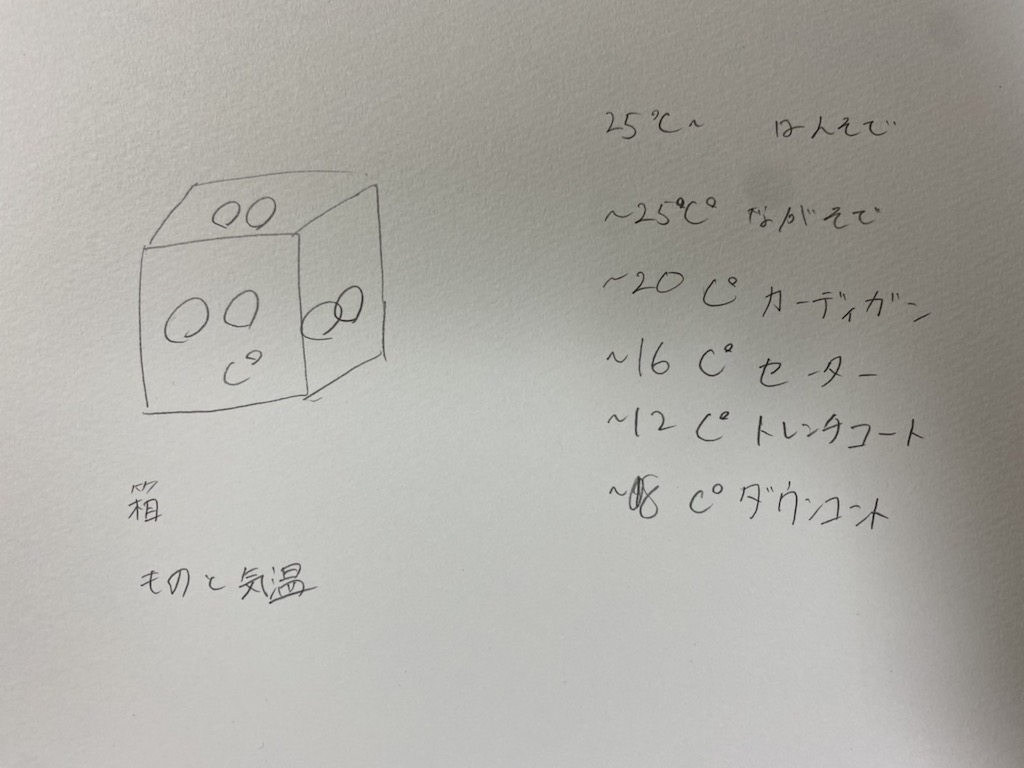 〇〇
〇〇
C°
〇〇
箱
ものと気温
25℃~ はんそで
~25℃° ながそで
~20 C° カーディガン
~16 C° セーター
~12 C° トレンチコート
~8 C° ダウンコート